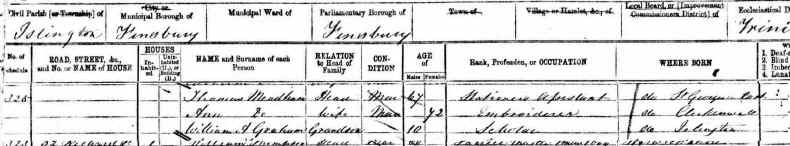 Civil Parish [or Township] of
City or
Municipal Borough of
Municipal Ward of
Parliamentary Borough of
Town of
Village or Hamlet, &c., of
Local Board, or [Improvement
Commissioners District] of
Ecclesiastical D
Islington
Finsbury
Finsbury
Trini
No. of
Schedule
ROAD, STREET, &c.,
and No. or NAME of HOUSE
HOUSES
In-
habit-
ed
Unin-
habited
(U.), or
Building
(B.)
NAME and Surname of each
Person
RELATION
to Head of
Family
CON-
DITION
AGE
of
Males
Females
Rank, Profession, or OCCUPATION
WHERE BORN
1. Deaf-
2. Blind
3. Imbec
4. Lunat
325 Thomas Mendham Head Mar 67 Stationers Assistant do St Georges East
Ann Do Wife Mar 72 Embroiderer do Clerkenwell
William A Graham Grandson 10 Scholar do Islington